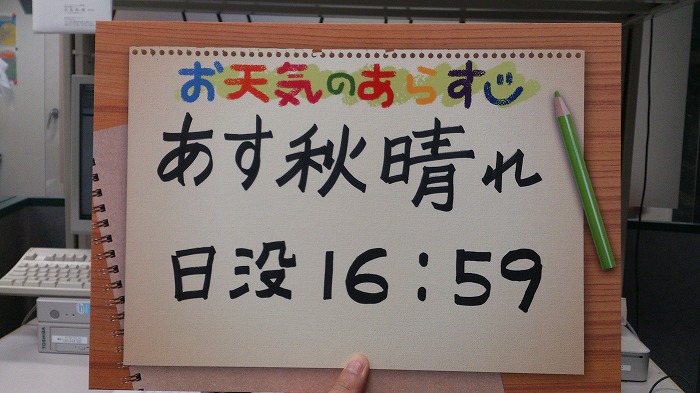 お天気のあらすじ
あす秋晴れ
日没16:59
TOSHIBA